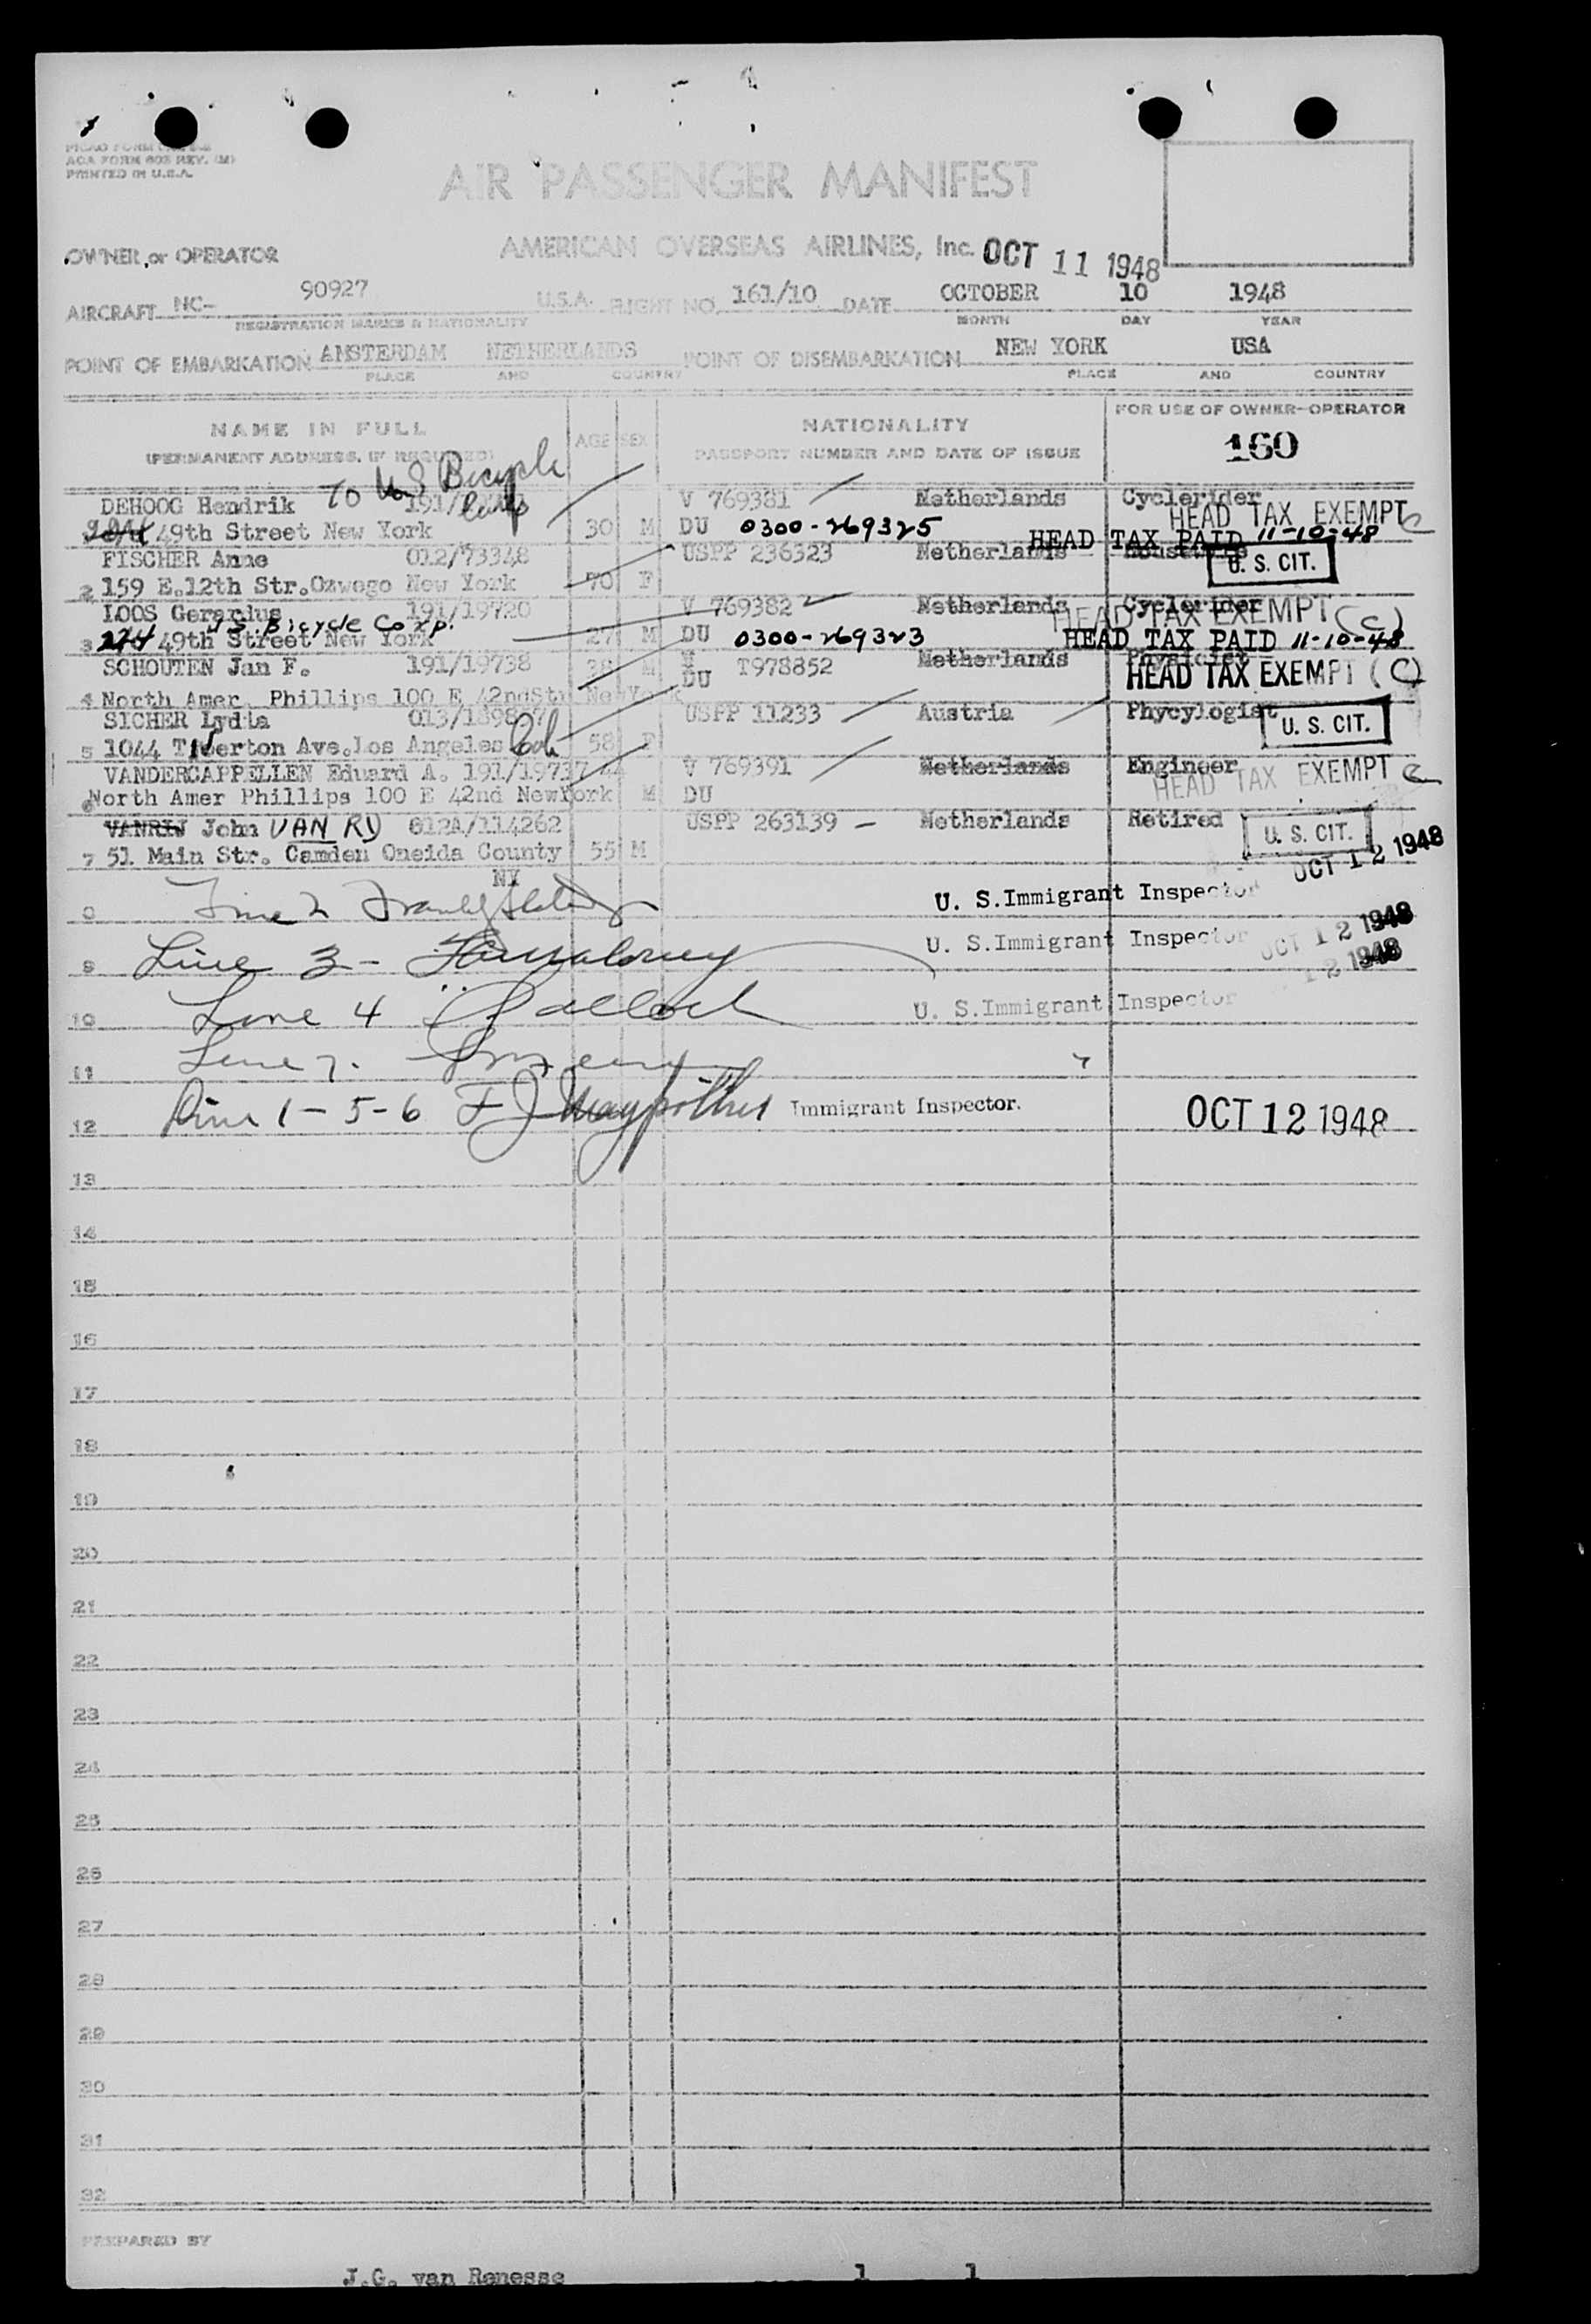 ACA FORM 608 REV. (M)
PRINTED IN U.S.A.
AIR PASSENGER MANIFEST
OWNER or OPERATOR AMERICAN OVERSEAS AIRLINES, Inc. OCT 11 1948
AIRCRAFT NC- 90927 U.S.A. FLIGHT NO. 161/10 DATE OCTOBER 10 1948
REGISTRATION MARKS & NATIONALITY MONTH DAY YEAR
POINT OF EMBARKATION AMSTERDAM NETHERLANDS POINT OF DISEMBARKATION NEW YORK USA
PLACE AND COUNTRY PLACE AND COUNTRY
NAME IN FULL AGE SEX NATIONALITY FOR USE OF OWNER-OPERATOR
(PERMANENT ADDRESS, IF REQUIRED) PASSPORT NUMBER AND DATE OF ISSUE 160
To U S Bicycle
DEHOOG Hendrik 191/ V 769381 Netherlands Cyclerider HEAD TAX EXEMPT C
49th Street New York 30 M DU 0300-269325 HEAD TAX PAID 11-10-48
FISCHER Anne 012/73348 USPP 236323 Netherlands U. S. CIT.
2 159 E.12th Str.Ozwego New York 70 F
LOOS Gerardus 191/19720 V 769382 Netherlands Cyclerider HEAD TAX EXEMPT (C)
U S Bicycle Corp.
3 274 49th Street New York 27 M DU 0300-269323 HEAD TAX PAID 11-10-48
SCHOUTEN Jan F. 191/19738 38 M V DU T978852 Netherlands Physicist HEAD TAX EXEMPT (C)
4 North Amer. Phillips 100 E 42ndStr NewYork
SICHER Lydia 013/189857 USPP 11233 Austria Phycylogist U. S. CIT.
5 1044 Tiverton Ave.Los Angeles 58 F
VANDERCAPPELLEN Eduard A. 191/19737 44 V 769391 Netherlands Engineer HEAD TAX EXEMPT C
6 North Amer Phillips 100 E 42nd NewYork M DU
VANRIJ John VAN RY 012A/114262 USPP 263139 Netherlands Retired U. S. CIT.
7 51 Main Str. Camden Oneida County 55 M OCT 12 1948
NY
8 Line 2 U. S.Immigrant Inspector
9 Line 3 - U. S.Immigrant Inspector OCT 12 1948
12 1948
10 Line 4 U. S.Immigrant Inspector
11 Line 7.
12 Line 1-5-6 Immigrant Inspector. OCT 12 1948
13
14
15
16
17
18
19
20
21
22
23
24
25
26
27
28
29
30
31
32
PREPARED BY
J.G. van Renesse 1 1